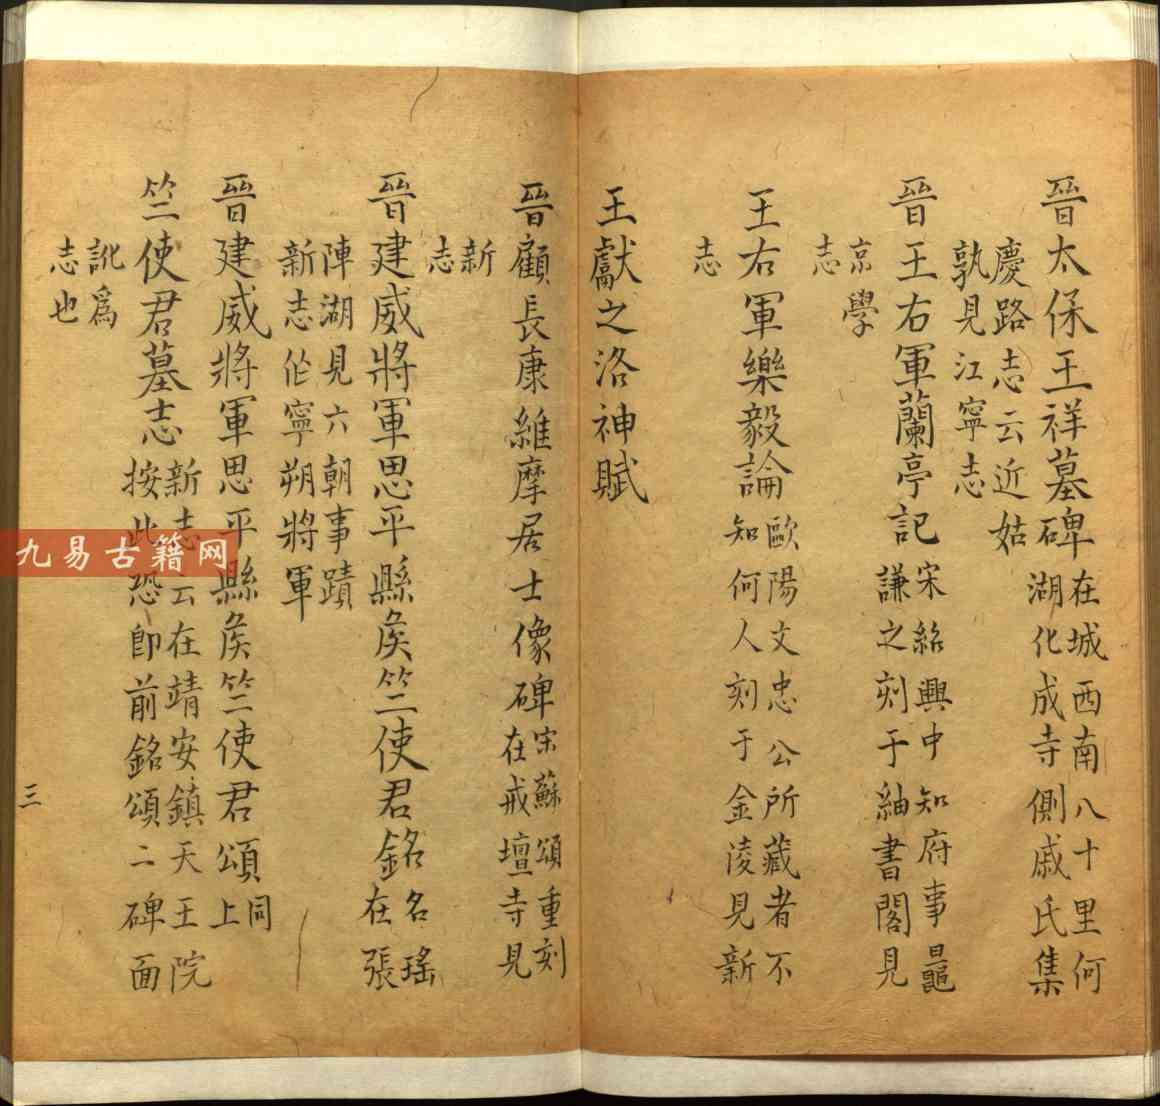 晉太保王祥墓碑在城西南八十里何
湖化成寺側戚氏集
慶路志云近姑
孰見江寧志
晉王右軍蘭亭記宋紹興中知府事鼂
謙之刻于紬書閣見
京學
志
王右軍樂毅論歐陽文忠公所藏者不
知何人刻于金陵見新
志
王獻之洛神賦
晉顧長康維摩居士像碑宋蘇頌重刻
在戒壇寺見
新
志
晉建威將軍思平縣矦竺使君銘名瑤
在張
陣湖見六朝事蹟
新志作寧朔將軍
晉建威將軍思平縣矦竺使君頌同
上
竺使君墓志新志云在靖安鎮天王院
按此恐卽前銘頌二碑面
訛爲
志也
三
九易古籍网